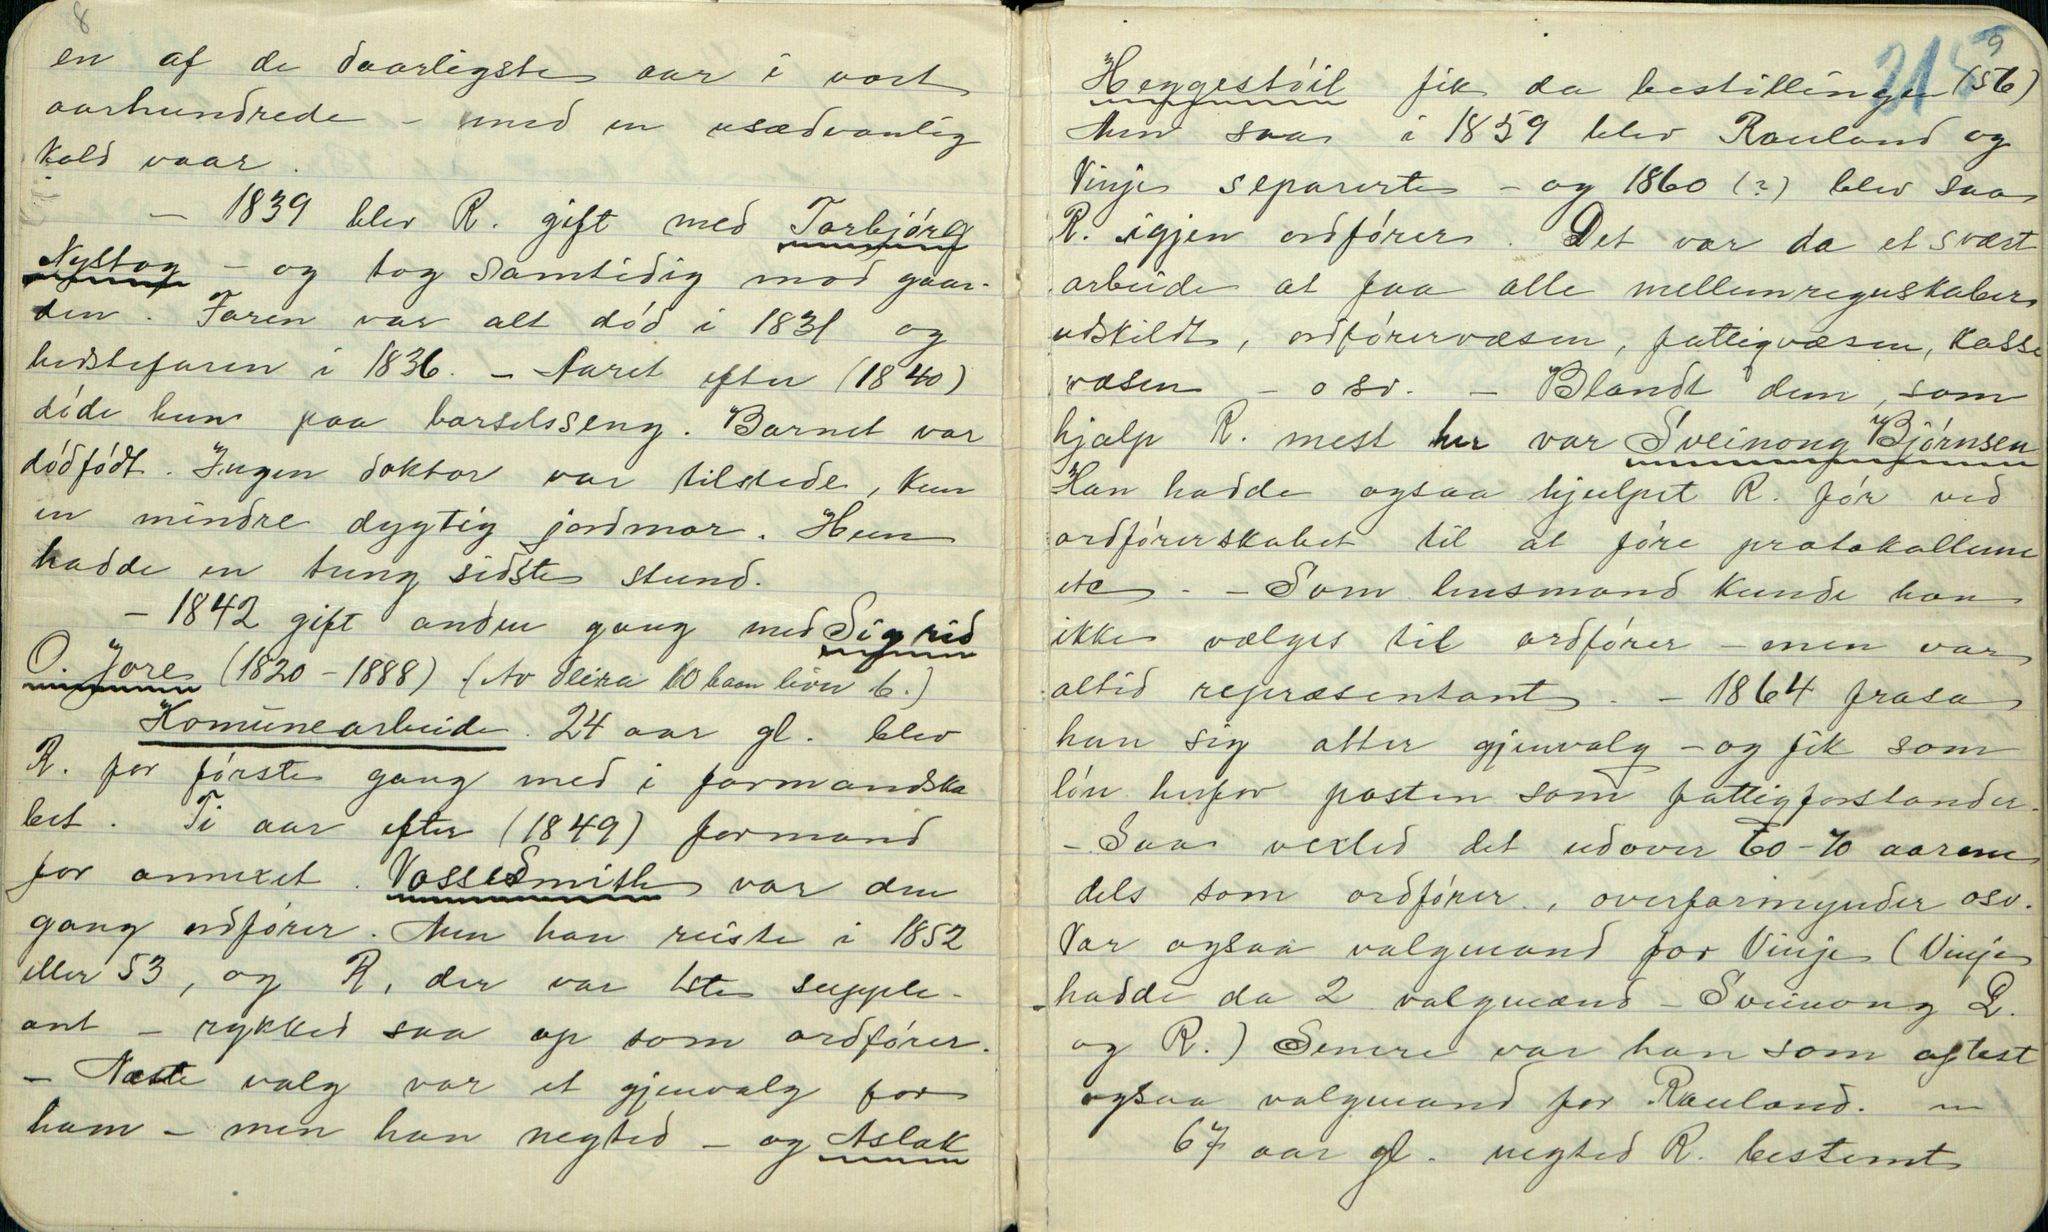 8
en af de daarligste aar i vort
aarhundrede - med en usædvanlig
kald vaar.
- 1839 blev R. gift med Torbjørg
Nystog - og tog samtidig mod gaar-
den. Faren var alt død i 1831 og
bedstefaren i 1836. - Aaret efter (1840)
døde hun paa barselsseng. Barnet var
dødfødt. Ingen doktor var tilstede, kun
en mindre dygtig jordmor. Hun
hadde en tung sidste stund.
- 1842 gift anden gang med Sigrid
O. Jore (1820-1888) (Av deira 10 baan liver 6.)
Komunearbeide. 24 aar gl. blev
R. for første gang med i formandska
bet. Ti aar efter (1849) formand
for annexet. Vosse Smith var den
gang ordfører. Men han reiste i 1852
eller 53, og R, der var 1ste supple-
ant - rykked saa op som ordfører.
- Næste valg var et gjenvalg for
ham - men han negted - og Aslak
9
215
Heggestøil fik da bestillingen (56)
Men saa i 1859 blev Rauland og
Vinje separerte - og 1860 (?) blev saa
R. igjen ordfører. Det var da et svært
arbeide at faa alle mellemregnskaber
udskildt, ordførervæsen, fattigvæsen, kasse
væsen - osv. - Blandt dem, som
hjalp R. mest her var Sveinong Bjørnsen
Han hadde ogsaa hjulpet R. før ved
ordførerskabet til at føre protokollerne
etc. - Som husmand kunde han
ikke vælges til ordfører - men var
altid repræsentant. - 1864 frasa
han sig atter gjenvalg - og fik som
løn herfor posten som fattigforstander.
- Saa vexled det udover 60-70 aarene
dels som ordfører, overformynder osv.
Var ogsaa valgmand for Vinje (Vinje
hadde da 2 valgmænd - Sveinong
og R.) Senere var han som oftest
ogsaa valgmand for Rauland. -
67 aar gl. negted R. bestemt